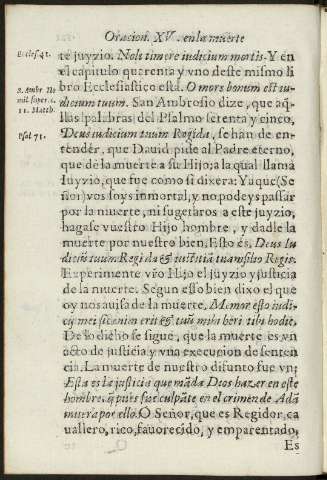 Oracion. XV. en la muerte
Eccles. 41.
te juyzio. Noli timere iudicium mortis. Y en
el capitulo quarenta y vno deste mismo li
bro Ecclesiastico está. O mors bonum est iu-
S. Ambr. Ho
mil super. c.
11. Matth.
dicium tuum. San Ambrosio dize, que aq̃-
llas palabras del Psalmo setenta y cinco,
Psal 71.
Deus iudicium tuum Regi da, se han de en-
tender, que Dauid pide al Padre eterno,
que dè la muerte a su Hijo; a la qual llama
Iuyzio, que fue como si dixera: Ya que (Se
ñor) vos soys inmortal, y no podeys passar
por la muerte, ni sugetaros a este juyzio,
hagase vuestro Hijo hombre, y dadle la
muerte por nuestro bien. Esto es. Deus Iu-
diciũ tuum. Regi da & iustitiã tuam filio Regis.
Experimente vr̃o Hijo el juyzio y justicia
de la muerte. Segun esto bien dixo el que
oy nos auisa de la muerte. Memor esto iudi-
cij mei sic enim erit & tuũ mihi heri, tibi hodie.
De lo dicho se sigue, que la muerte es vn
acto de justicia y vna execucion de senten
cia. La muerte de nuestro difunto fue vn;
Esta es la justicia que mãda Dios hazer en este
hombre, q̃ pues fue culpãte en el crimen de Adã
muera por ello. O Señor, que es Regidor, ca
uallero, rico, fauorecido, y emparentado,
Es